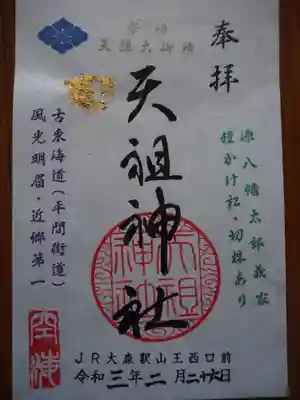 奉拝
祭神
天照大御神
源八幡太郎義家
鎧かけ松・切株あり
天祖神社
天祖神社
古東海道(平間街道)
風光明眉・近郷第一
JR大森駅山王西口前
令和三年二月二十六日